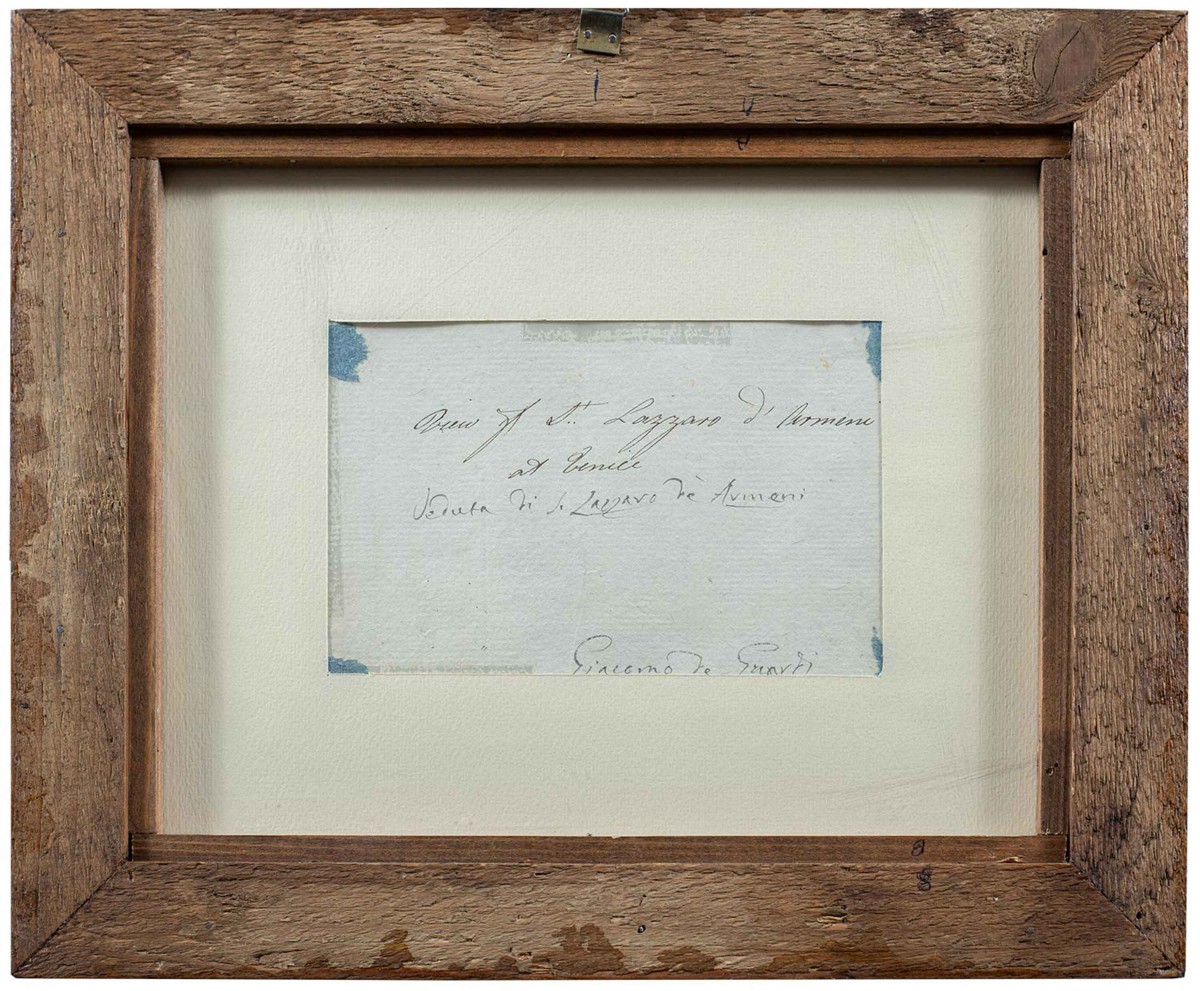 View of St. Lazzaro d' Armeni
at Venice
Veduta di S. Lazzaro de Armeni
Giacomo de Guardi